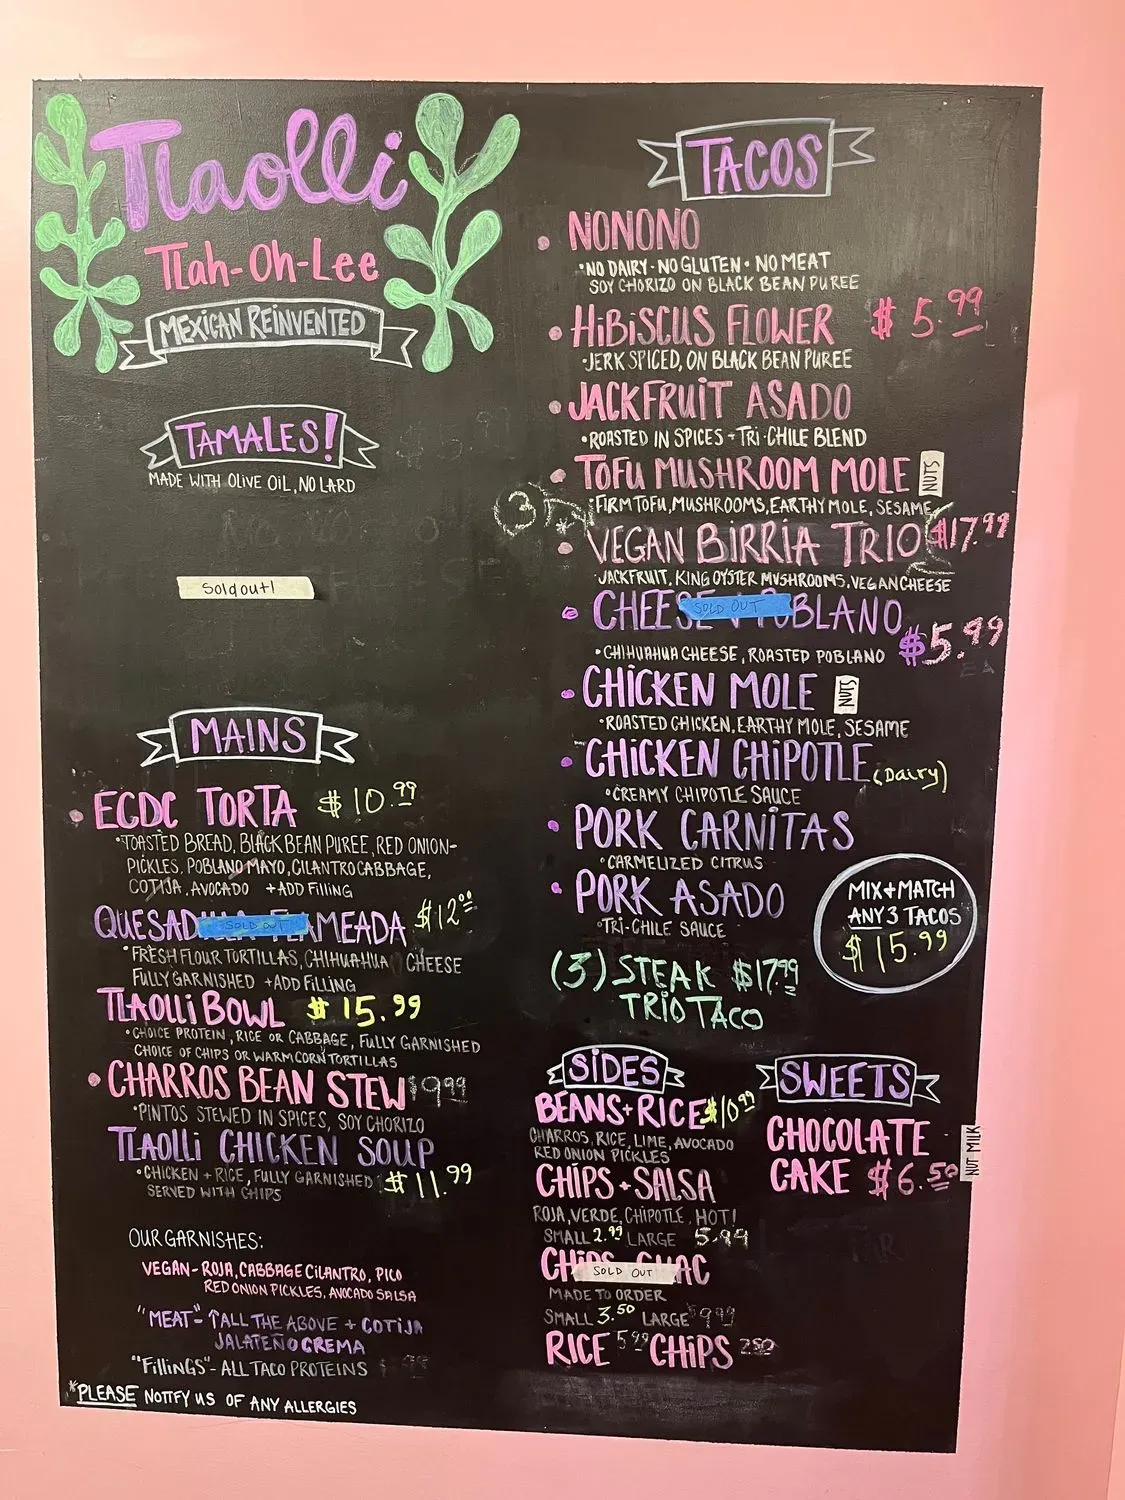 Tlaolli
Tlah-Oh-Lee
MEXICAN REINVENTED
TAMALES!
MADE WITH OLIVE OIL, NO LARD
Sold out!
MAINS
ECDC TORTA $10.99
•TOASTED BREAD, BLACK BEAN PUREE, RED ONION-
PICKLES, POBLANO MAYO, CILANTRO CABBAGE,
COTIJA, AVOCADO +ADD FILLING
QUESAD FLAMEADA $12.00
SOLD OUT
•FRESH FLOUR TORTILLAS, CHIHUAHUA CHEESE
FULLY GARNISHED +ADD FILLING
TLAOLLI BOWL $15.99
•CHOICE PROTEIN, RICE OR CABBAGE, FULLY GARNISHED
CHOICE OF CHIPS OR WARM CORN TORTILLAS
CHARROS BEAN STEW $9.99
•PINTOS STEWED IN SPICES, SOY CHORIZO
TLAOLLI CHICKEN SOUP
•CHICKEN + RICE, FULLY GARNISHED $11.99
SERVED WITH CHIPS
OUR GARNISHES:
VEGAN- ROJA, CABBAGE CILANTRO, PICO
RED ONION PICKLES, AVOCADO SALSA
"MEAT"- ↑ALL THE ABOVE + COTIJA
JALAPEÑO CREMA
"FILLINGS"- ALL TACO PROTEINS
*PLEASE NOTIFY US OF ANY ALLERGIES
TACOS
NONONO
•NO DAIRY - NO GLUTEN • NO MEAT
SOY CHORIZO ON BLACK BEAN PUREE
HIBISCUS FLOWER $5.99
•JERK SPICED, ON BLACK BEAN PUREE
JACKFRUIT ASADO
•ROASTED IN SPICES + TRI-CHILE BLEND
TOFU MUSHROOM MOLE NUTS
•FIRM TOFU, MUSHROOMS, EARTHY MOLE, SESAME
(3) * VEGAN BIRRIA TRIO $17.99
JACKFRUIT, KING OYSTER MUSHROOMS, VEGAN CHEESE
CHEESE + POBLANO
SOLD OUT
$5.99
EA
•CHIHUAHUA CHEESE, ROASTED POBLANO
CHICKEN MOLE NUTS
•ROASTED CHICKEN, EARTHY MOLE, SESAME
CHICKEN CHIPOTLE (Dairy)
•CREAMY CHIPOTLE SAUCE
PORK CARNITAS
•CARMELIZED CITRUS
PORK ASADO
•TRI-CHILE SAUCE
MIX+MATCH
ANY 3 TACOS
$15.99
(3) STEAK $17.99
TRIO TACO
SIDES
BEANS+RICE $10.99
CHARROS, RICE, LIME, AVOCADO
RED ONION PICKLES
CHIPS + SALSA
ROJA, VERDE, CHIPOTLE, HOT!
SMALL 2.99 LARGE 5.99
CHIPS GUAC
SOLD OUT
MADE TO ORDER
SMALL 3.50 LARGE $9.99
RICE 5.99 CHIPS 2.50
SWEETS
CHOCOLATE
CAKE $6.50
NUT MILK